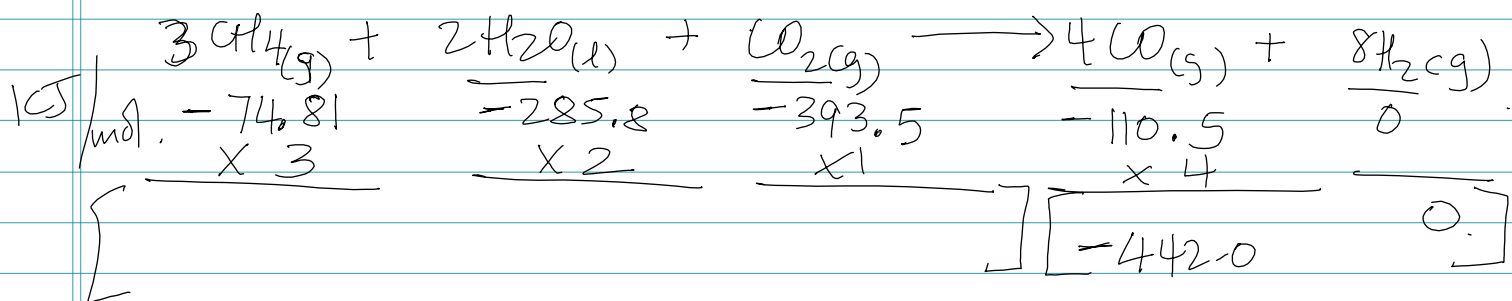 3CH4(g) + 2H2O(l) + CO2(g) → 4CO(g) + 8H2(g)
KJ/mol. -74.81 -285.8 -393.5 -110.5 0
x 3 x 2 x1 x 4
[ ] [-442.0 0.]